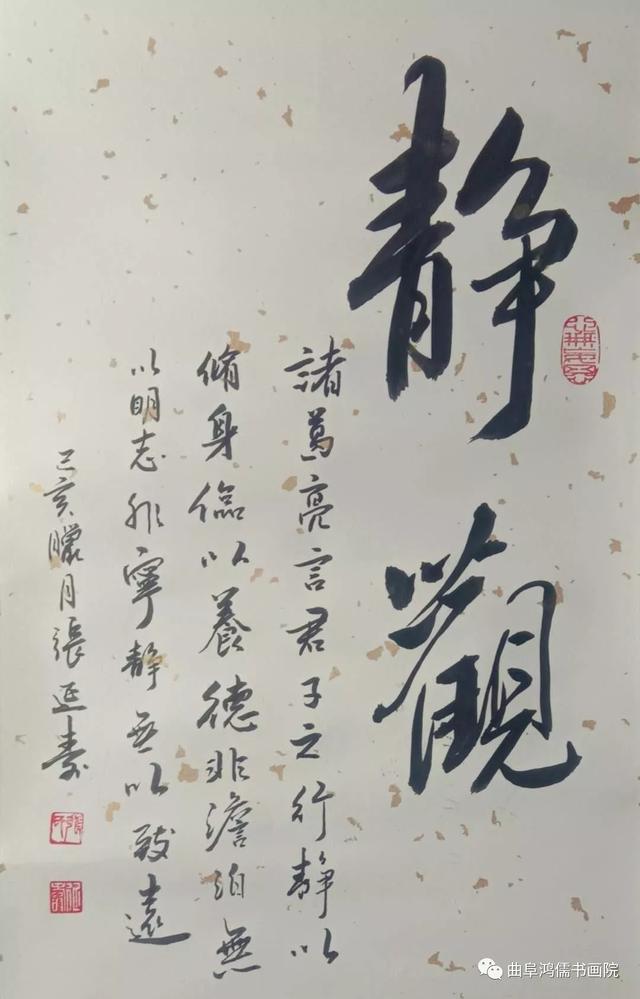 静觀
諸葛亮言君子之行静以
脩身儉以養德非澹泊無
以明志非寧静無以致遠
己亥臘月張延壽
曲阜鸿儒书画院